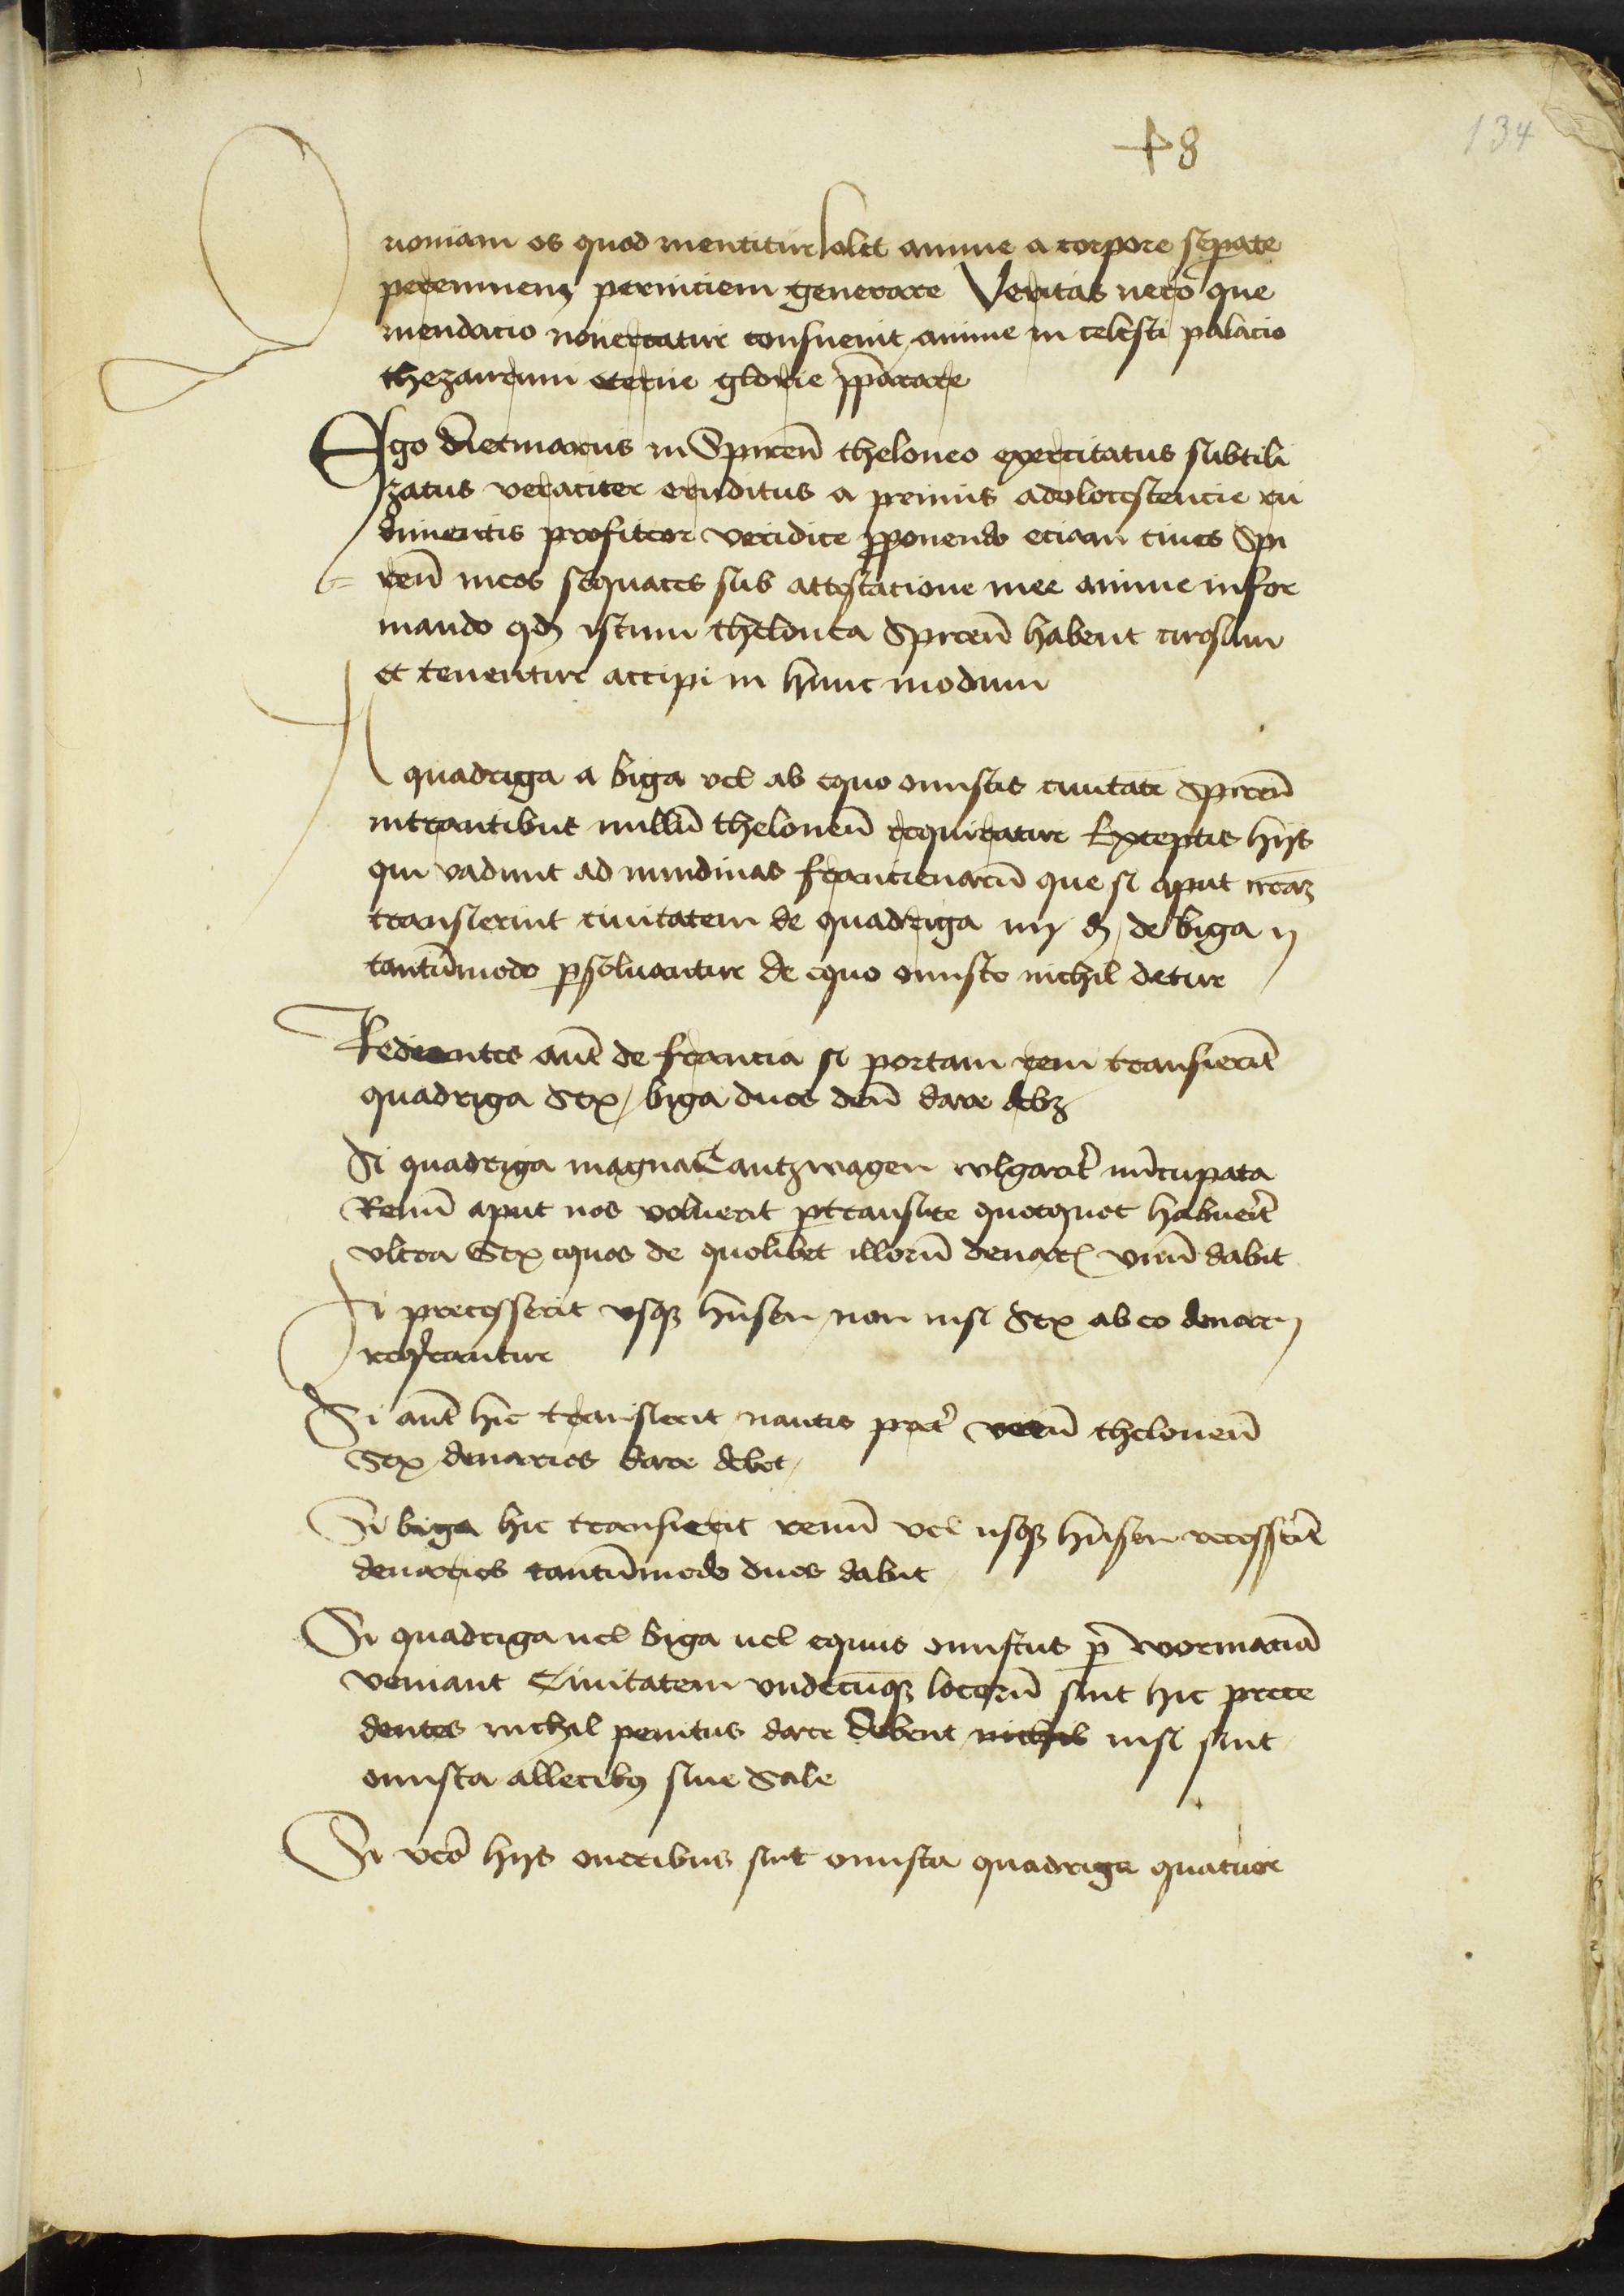 48
134
Quoniam os quod mentitur solet anime a corpore sepate
perennem perniciem generare Veritas uero que
mendacio nouercatur consueuit anime in celesti palacio
thezaurum eterne glorie pparare
Ego dietmarus in Spiren̄ theloneo exercitatus subtili
zatus veraciter eruditus a primis adolocestencie ru
dimentis profiteor veridice pponendo eciam ciues Spi
ren̄ meos sequaces sub attestacione mee anime infor
mando qd istum thelonea Spiren̄ habent cursum
et tenentur accipi in hunc modum
A quadriga a biga vel ab equo onustis ciuitate Spiren̄
intrantibus nullū theloneū requiratur Exceptis hijs
qui vadunt ad nundinas francienarū que si aput
transierint ciuitatem de quadriga iiij d de biga ij
tantūmodo psoluantur de equo onusto nichil detur
Redeontes aut̄ de francia si portam reni transierit̄
quadriga Sex / biga duos den̄ dare debȝ
Si quadriga magna Cantzwagen wlgarit̄ nūcupata
Renū aput nos voluerit ptransire quotquot habuerit̄
vltra Sex equos de quolibet illorū denar vnū dabit
Si precesserit vsqȝ husen / non nisi Sex ab eo denarij
reqrantur
Si aut̄ hic transierit nautis pret̄ verū theloneū
Sex denarios dare debet /
Si biga hic transierit renū vel usqȝ husen recesserit̄
denarios tantūmodo duos dabit
Si quadriga uel biga uel equus onustus p wormaciā
veniant Ciuitatem vndecūqȝ locorū sint hic prece
dentes nichil penitus dare debent nichil nisi sint
onusta allecibꝰ siue Sale
Si vero hijs oneribus sint onusta quadriga quatuor